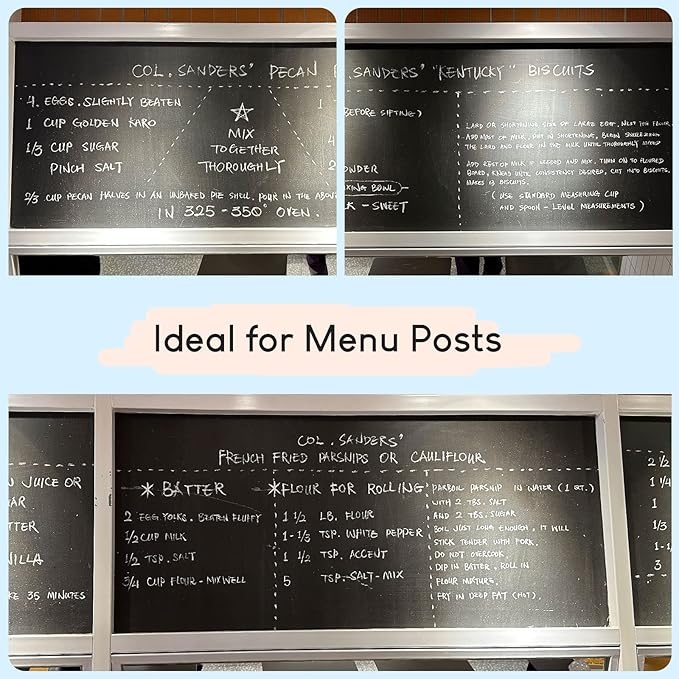 COL. SANDERS' PECAN
4 EGGS. SLIGHTLY BEATEN
1 CUP GOLDEN KARO
1/3 CUP SUGAR
PINCH SALT
MIX
TOGETHER
THOROUGHLY
2/3 CUP PECAN HALVES IN AN UNBAKED PIE SHELL. POUR IN THE ABOV
IN 325-350° OVEN.
. SANDERS' "KENTUCKY" BISCUITS
(BEFORE SIFTING)
OWDER
XING BOWL)
K - SWEET
LARD OR SHORTENING SIZE OF LARGE EGG. NEST THE FLOUR.
ADD MOST OF MILK, PUT IN SHORTENING, BEGIN SQUEEZING
THE LARD AND FLOUR IN THE MILK UNTIL THOROUGHLY MIXED
ADD REST OF MILK IF NEEDED AND MIX. TURN ON TO FLOURED
BOARD, KNEAD UNTIL CONSISTENCY DESIRED, CUT INTO BISCUITS,
MAKES 13 BISCUITS.
(USE STANDARD MEASURING CUP
AND SPOON - LEVEL MEASUREMENTS)
Ideal for Menu Posts
N JUICE OR
AR
TTER
NILLA
KE 35 MINUTES
COL. SANDERS'
FRENCH FRIED PARSNIPS OR CAULIFLOUR
* BATTER
2 EGG YOLKS. BEATEN FLUFFY
1/2 CUP MILK
1/2 TSP. SALT
3/4 CUP FLOUR - MIX WELL
* FLOUR FOR ROLLING
1 1/2 LB. FLOUR
1-1/3 TSP. WHITE PEPPER
1 1/2 TSP. ACCENT
5 TSP. SALT - MIX
PARBOIL PARSNIP IN WATER (1 QT.)
WITH 2 TBS. SALT
AND 2 TBS. SUGAR
BOIL JUST LONG ENOUGH, IT WILL
STICK TENDER WITH FORK.
DO NOT OVERCOOK.
DIP IN BATTER. ROLL IN
FLOUR MIXTURE.
FRY IN DEEP FAT (HOT).
2 1/2
1 1/4
1
1/3
1-1
3